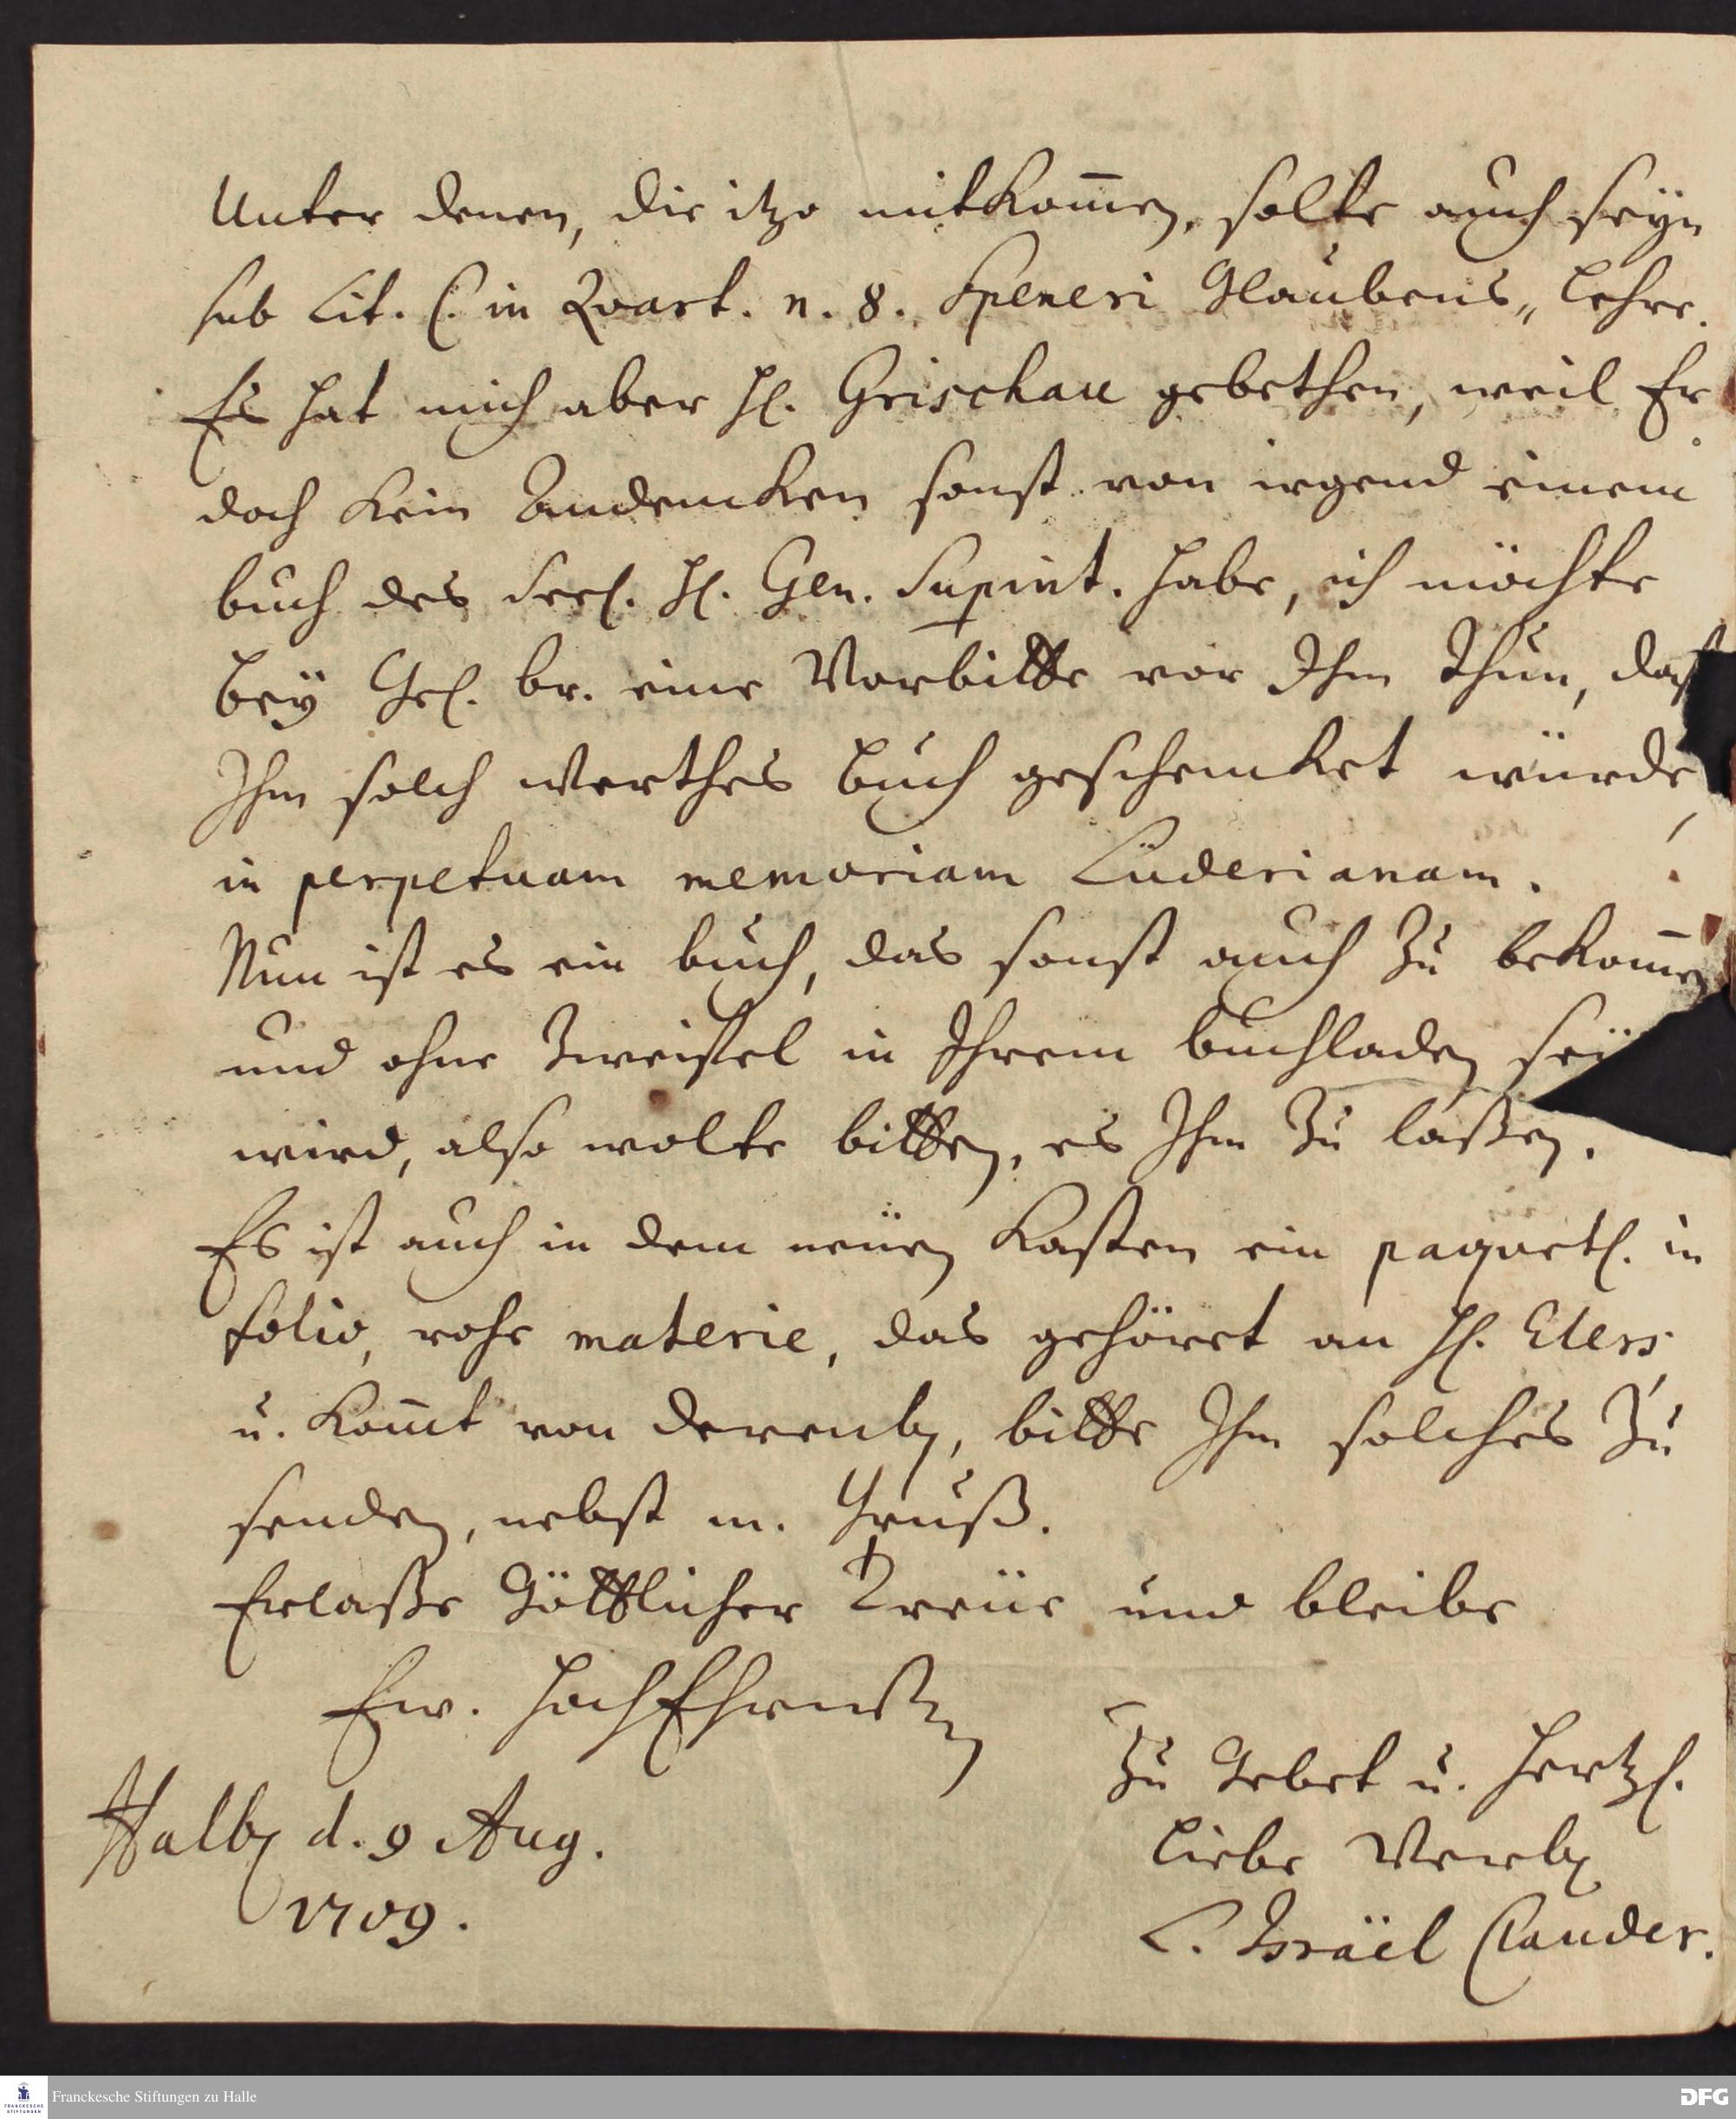 Unter denen, die itzo mitkom̄en, solte auch seÿn
sub Lit. C. in Quart. n. 8. Speneri Glaubens„ Lehre.
Es hat mich aber H. Grischau gebethen, weil Er
doch kein Andencken sonst von irgend einem
buch des Seel. H. Gen. Supint. habe, ich möchte
beÿ Gel. br. eine Vorbitte vor Ihm thun, daß
Ihm solch werthes buch geschencket würde,
in perpetuam memoriam Lüderianam.
Nun ist es ein buch, das sonst auch zu bekom̄en
und ohne Zweiffel in Ihrem buchladen seÿ
wird, also wolte bitten, es Ihm zu laßen.
Es ist auch in dem neüen Kasten ein paquetl. in
folio, rohe materie, das gehöret an H. Elers,
u. kom̄t von Derenb, bitte Ihm solches zu
senden, nebst m. Gruß.
Erlaße Göttlicher Treüe und bleibe
Ew. HochEhrwß
Zu Gebet u. hertzl.
Halb d. 9 Aug.
Liebe Verb
1709.
C. Israël Clauder.
Franckesche Stiftungen zu Halle
FRANCKESCHE STIFTUNGEN
DFG